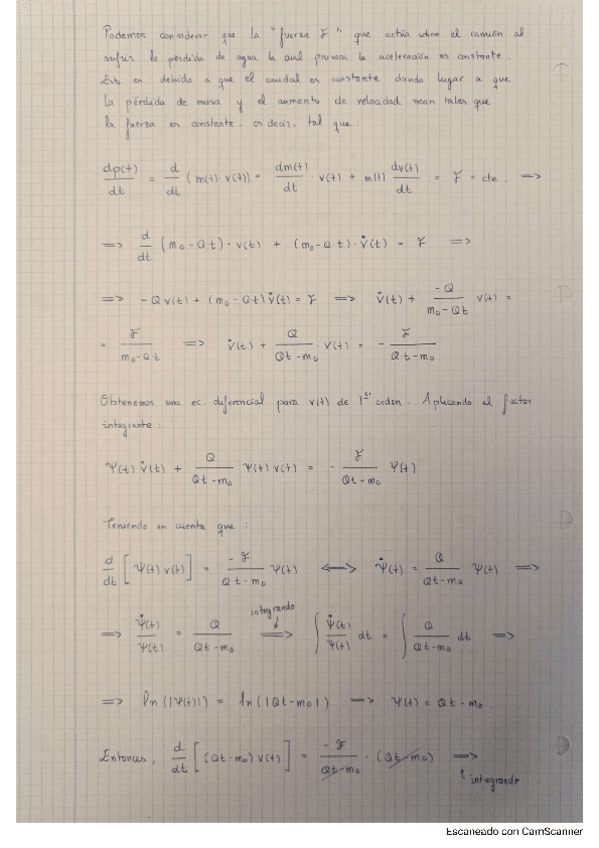 Podemos considerar que la "fuerza F" que actúa sobre el camión al
sufrir la pérdida de agua la cual provoca la aceleración es constante.
Esto es debido a que el caudal es constante dando lugar a que
la pérdida de masa y el aumento de velocidad sean tales que
la fuerza es constante, es decir, tal que:
dp(t)/dt = d/dt (m(t)·v(t)) = dm(t)/dt · v(t) + m(t) dv(t)/dt = F = cte. =>
=> d/dt (m₀-Q·t)·v(t) + (m₀-Q·t)·v̇(t) = F =>
=> -Q v(t) + (m₀-Qt) v̇(t) = F => v̇(t) + -Q/(m₀-Qt) v(t) =
= F/(m₀-Q·t) => v̇(t) + Q/(Qt-m₀) · v(t) = - F/(Q·t-m₀)
Obtenemos una ec. diferencial para v(t) de 1er orden. Aplicando el factor
integrante:
Ψ(t) v̇(t) + Q/(Qt-m₀) Ψ(t) v(t) = - F/(Qt-m₀) Ψ(t)
Teniendo en cuenta que:
d/dt [Ψ(t) v(t)] = -F/(Q·t-m₀) Ψ(t) <-> Ψ̇(t) = Q/(Qt-m₀) Ψ(t) =>
=> Ψ̇(t)/Ψ(t) = Q/(Qt-m₀) integrando => ∫ Ψ̇(t)/Ψ(t) dt = ∫ Q/(Qt-m₀) dt =>
=> ln(|Ψ(t)|) = ln(|Qt-m₀|) -> Ψ(t) = Qt-m₀.
Entonces, d/dt [(Qt-m₀) v(t)] = -F/(Qt-m₀) · (Qt-m₀) =>
integrando
Escaneado con CamScanner